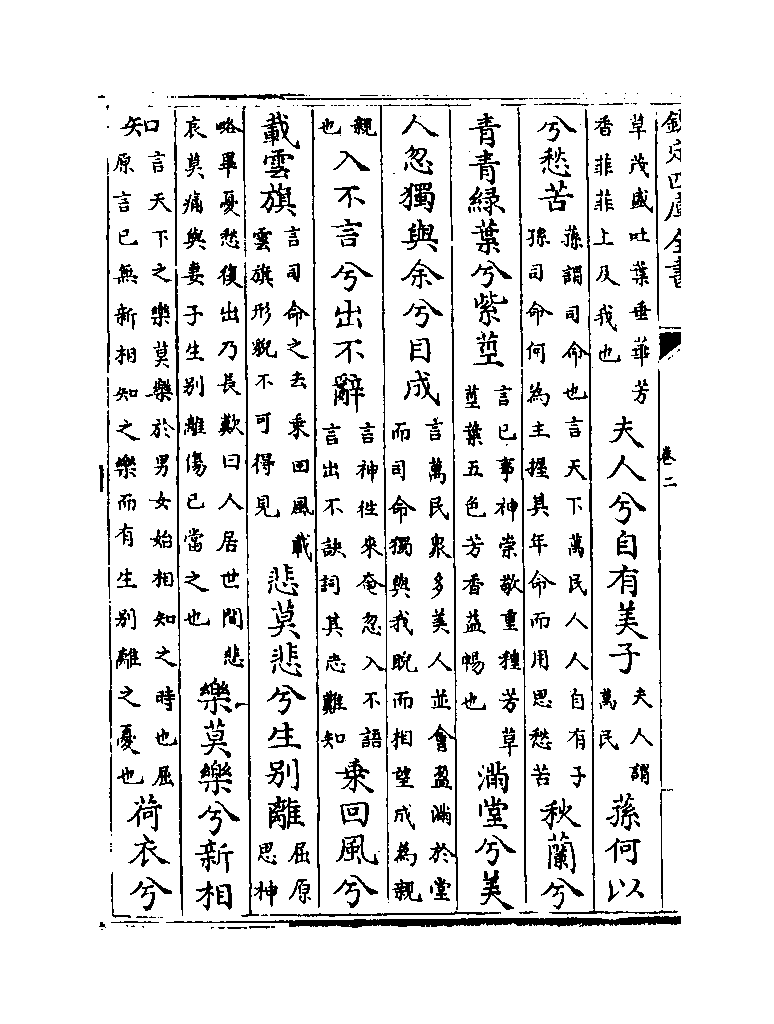 欽定四庫全書 卷二
草茂盛吐葉垂華芳
香菲菲上及我也
夫人兮自有美子
夫人謂
萬民
蓀何以
兮愁苦
蓀謂司命也言天下萬民人人自有子
孫司命何為主握其年命而用思愁苦
秋蘭兮
青青綠葉兮紫莖
言已事神崇敬重種芳草
莖葉五色芳香益暢也
滿堂兮美
人忽獨與余兮目成
言萬民衆多美人並會盈滿於堂
而司命獨與我睨而相望成為親
親
也
入不言兮出不辭
言神往來奄忽入不語
言出不訣詞其志難知
乗回風兮
載雲旗
言司命之去乗回風載
雲旗形貌不可得見
悲莫悲兮生别離
屈原
思神
略畢憂愁復出乃長歎曰人居世間悲
哀莫痛與妻子生别離傷已當之也
樂莫樂兮新相
知
言天下之樂莫樂於男女始相知之時也屈
原言已無新相知之樂而有生别離之憂也
荷衣兮